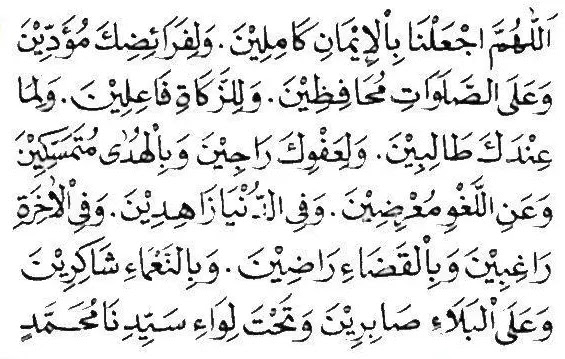 اَللّٰهُمَّ اجْعَلْنَا بِاْلإِيْمَانِ كَامِلِيْنَ. وَلِفَرَائِضِكَ مُؤَدِّيْنَ
وَعَلَى الصَّلَوَاتِ مُحَافِظِيْنَ. وَلِلزَّكَاةِ فَاعِلِيْنَ. وَلِمَا
عِنْدَكَ طَالِبِيْنَ. وَلِعَفْوِكَ رَاجِيْنَ وَبِاْلهُدَى مُتَمَسِّكِيْنَ
وَعَنِ اللَّغْوِ مُعْرِضِيْنَ. وَفِى الدُّنْيَا زَاهِدِيْنَ. وَفِى اْلاٰخِرَةِ
رَاغِبِيْنَ وَبِاْلقَضَاءِ رَاضِيْنَ. وَبِالنَّعْمَاءِ شَاكِرِيْنَ
وَعَلَى اْلبَلَاءِ صَابِرِيْنَ وَتَحْتَ لِوَاءِ سَيِّدِنَا مُحَمَّدٍ